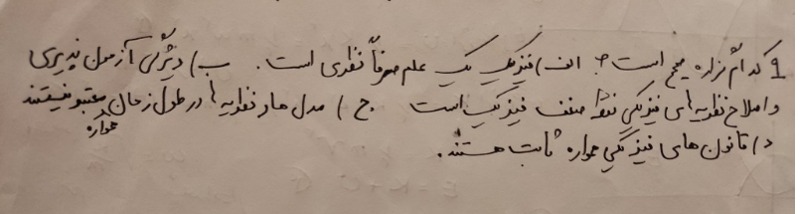 9 کدام گزاره صحیح است؟ الف) فیزیک یک علم صرفاً نظری است. ب) ویژگی آزمون پذیری
و اصلاح نظریه‌های فیزیکی نقطه ضعف فیزیک است ج) مدل ها و نظریه ها در طول زمان همواره معتبر نیستند
د) قانون های فیزیکی همواره ثابت هستند.